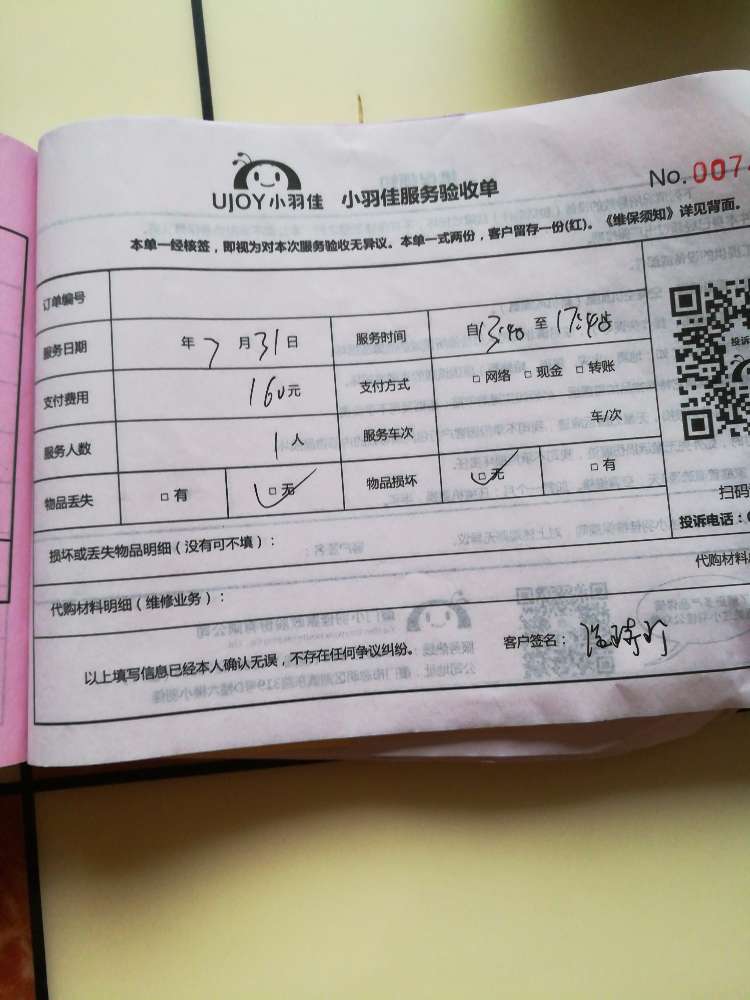 UJOY小羽佳 小羽佳服务验收单 No.007
本单一经核签，即视为对本次服务验收无异议。本单一式两份，客户留存一份(红)。《维保须知》详见背面。
订单编号
服务日期 年 7 月 31 日 服务时间 自 13:40 至 17:40
支付费用 160元 支付方式 □ 网络 □ 现金 □ 转账
服务人数 1 人 服务车次 车/次
物品丢失 □ 有 □ 无 物品损坏 □ 无 □ 有
投诉
扫码
投诉电话：
损坏或丢失物品明细（没有可不填）：
代购材料
代购材料明细（维修业务）：
以上填写信息已经本人确认无误，不存在任何争议纠纷。 客户签名：